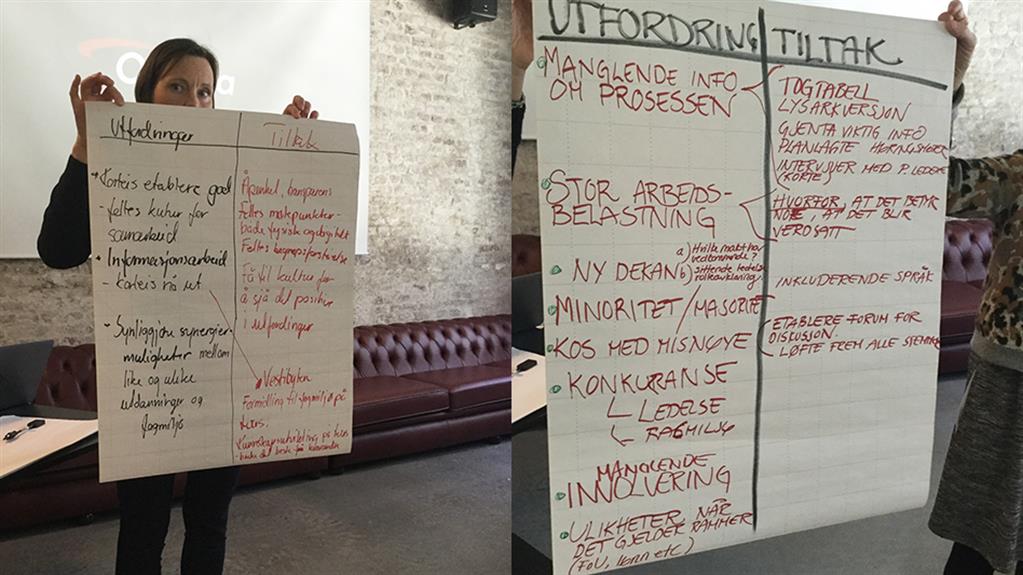 Utfordninger
Tiltak
Korleis etablere god
felles kultur for
samarbeid
Informasjonsarbeid
- korleis nå ut
Synliggjøre synergier-
muligheter mellom
like og ulike
utdanninger og
fagmiljø
Åpenhet, transparens
Felles møtepunkter -
både fysisk og digitalt
Felles begrepsforståelse
Få til kultur for
å sjå det positive
i utfordringer
Vestibylen
Formidling til fagmiljø på
kurs.
UTFORDRING
TILTAK
MANGLENDE INFO
OM PROSESSEN
TOGTABELL
LYSARKVERSJON
GJENTA VIKTIG INFO
PLANLAGTE HØRINGSMØTER
INTERVJUER MED P. LEDERE
(KORTE)
STOR ARBEIDS-
BELASTNING
HVORFOR, AT DET BETYR
NOE, AT DET BLIR
VERDSATT
NY DEKAN
a) Hvilke makt har
vedkommende?
b) sittende ledelse
rolleavklaring
INKLUDERENDE SPRÅK
MINORITET / MAJORITET
KOS MED MISNØYE
ETABLERE FORUM FOR
DISKUSJON.
LØFTE FREM ALLE STEMMER
KONKURANSE
LEDELSE
FAGMILJØ
MANGLENDE
INVOLVERING
ULIKHETER NÅR
DET GJELDER RAMMER
(FoU, lønn etc)